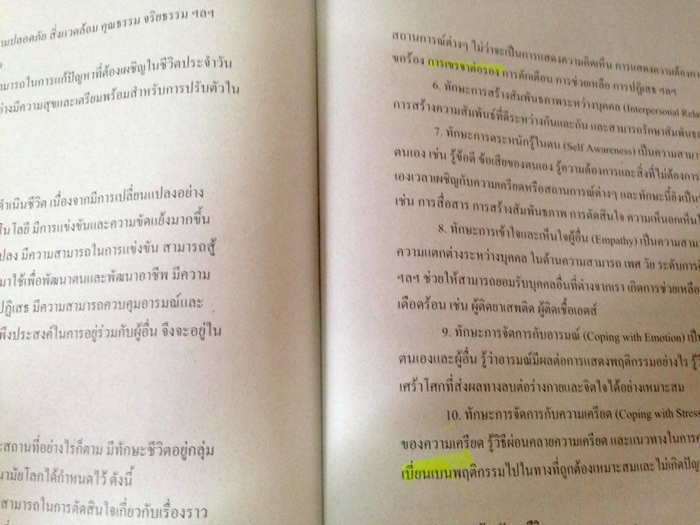 ามปลอดภัย สิ่งแวดล้อม คุณธรรม จริยธรรม ฯลฯ
ามารถในการแก้ปัญหาที่ต้องเผชิญในชีวิตประจำวัน
่างมีความสุขและเตรียมพร้อมสำหรับการปรับตัวใน
ดำเนินชีวิต เนื่องจากมีการเปลี่ยนแปลงอย่าง
นโลยี มีการแข่งขันและความขัดแย้งมากขึ้น
ปลง มีความสามารถในการแข่งขัน สามารถสู้
มาใช้เพื่อพัฒนาตนและพัฒนาอาชีพ มีความ
ปฏิเสธ มีความสามารถควบคุมอารมณ์และ
พึงประสงค์ในการอยู่ร่วมกับผู้อื่น จึงจะอยู่ใน
ะสถานที่อย่างไรก็ตาม มีทักษะชีวิตอยู่กลุ่ม
นามัยโลกได้กำหนดไว้ ดังนี้
สามารถในการตัดสินใจเกี่ยวกับเรื่องราว
สถานการณ์ต่างๆ ไม่ว่าจะเป็นการแสดงความคิดเห็น การแสดงความต้อง
ขอร้อง การเจรจาต่อรอง การตักเตือน การช่วยเหลือ การปฏิเสธ ฯลฯ
6. ทักษะการสร้างสัมพันธภาพระหว่างบุคคล (Interpersonal Rela
การสร้างความสัมพันธ์ที่ดีระหว่างกันและกัน และสามารถรักษาสัมพันธภ
7. ทักษะการตระหนักรู้ในตน (Self Awareness) เป็นความสามา
ตนเอง เช่น รู้ข้อดี ข้อเสียของตนเอง รู้ความต้องการและสิ่งที่ไม่ต้องการ
เองเวลาเผชิญกับความเครียดหรือสถานการณ์ต่างๆ และทักษะนี้ยังเป็น
เช่น การสื่อสาร การสร้างสัมพันธภาพ การตัดสินใจ ความเห็นอกเห็นใ
8. ทักษะการเข้าใจและเห็นใจผู้อื่น (Empathy) เป็นความสามา
ความแตกต่างระหว่างบุคคล ในด้านความสามารถ เพศ วัย ระดับการ
ฯลฯ ช่วยให้สามารถยอมรับบุคคลอื่นที่ต่างจากเรา เกิดการช่วยเหลือ
เดือดร้อน เช่น ผู้ติดยาเสพติด ผู้ติดเชื้อเอดส์
9. ทักษะการจัดการกับอารมณ์ (Coping with Emotion) เป็
ตนเองและผู้อื่น รู้ว่าอารมณ์มีผลต่อการแสดงพฤติกรรมอย่างไร รู้วิ
เศร้าโศกที่ส่งผลทางลบต่อร่างกายและจิตใจได้อย่างเหมาะสม
10. ทักษะการจัดการกับความเครียด (Coping with Stress
ของความเครียด รู้วิธีผ่อนคลายความเครียด และแนวทางในการค
เบี่ยงเบนพฤติกรรมไปในทางที่ถูกต้องเหมาะสมและไม่เกิดปัญ